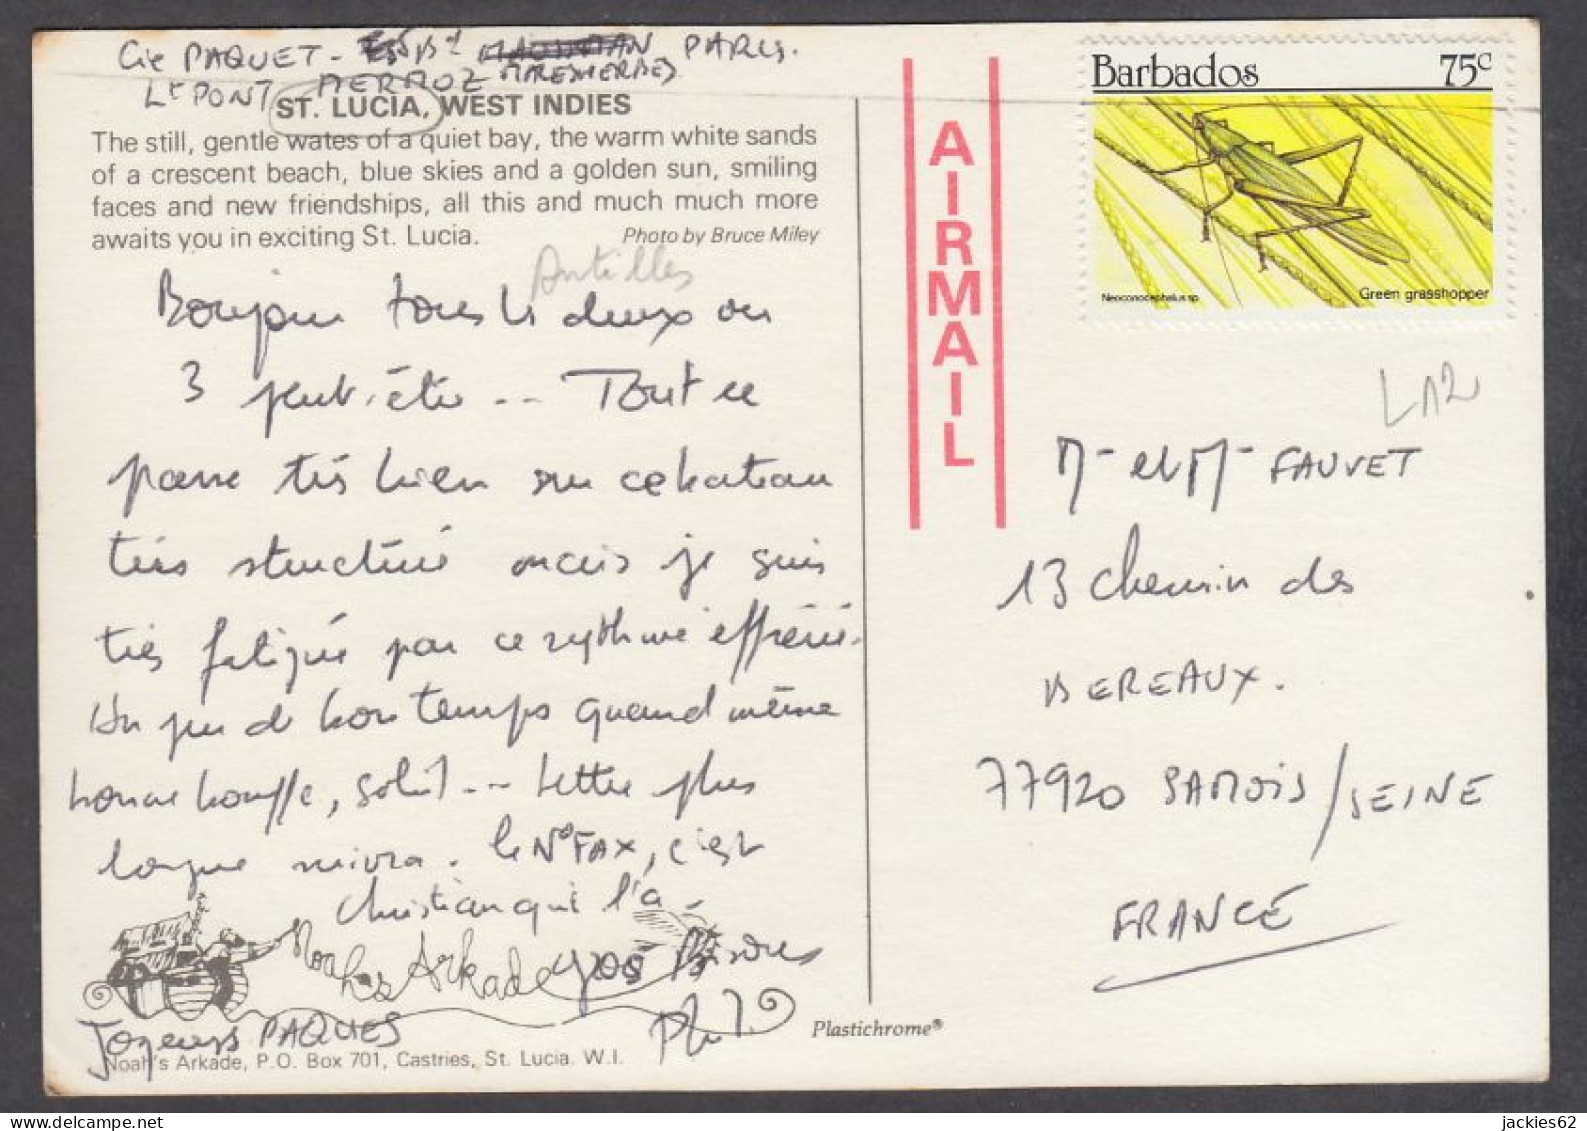 Cie PAQUET - PARIS.
MALESHERBES
Lt PONT MERMOZ
ST. LUCIA, WEST INDIES
The still, gentle wates of a quiet bay, the warm white sands
of a crescent beach, blue skies and a golden sun, smiling
faces and new friendships, all this and much much more
awaits you in exciting St. Lucia. Photo by Bruce Miley
Antilles
Bonjour tous les deux ou
3 peut-être -- Tout se
passe très bien sur ce bateau
très structuré mais je suis
très fatigué par ce rythme effréné.
Un peu de bon temps quand même
bonne bouffe, soleil -- Lettre plus
longue suivra. le N° FAX, c'est
Christian qui l'a -
Noah's Arkade
gros Bisous
Joyeuses PAQUES
Noah's Arkade, P.O. Box 701, Castries, St. Lucia. W.I.
Plastichrome®
AIRMAIL
Barbados 75c
Neoconocephalus sp. Green grasshopper
LA2
Mr et Mme FAUVET
13 chemin des
BEREAUX.
77920 SAMOIS / SEINE
FRANCE
jackies62